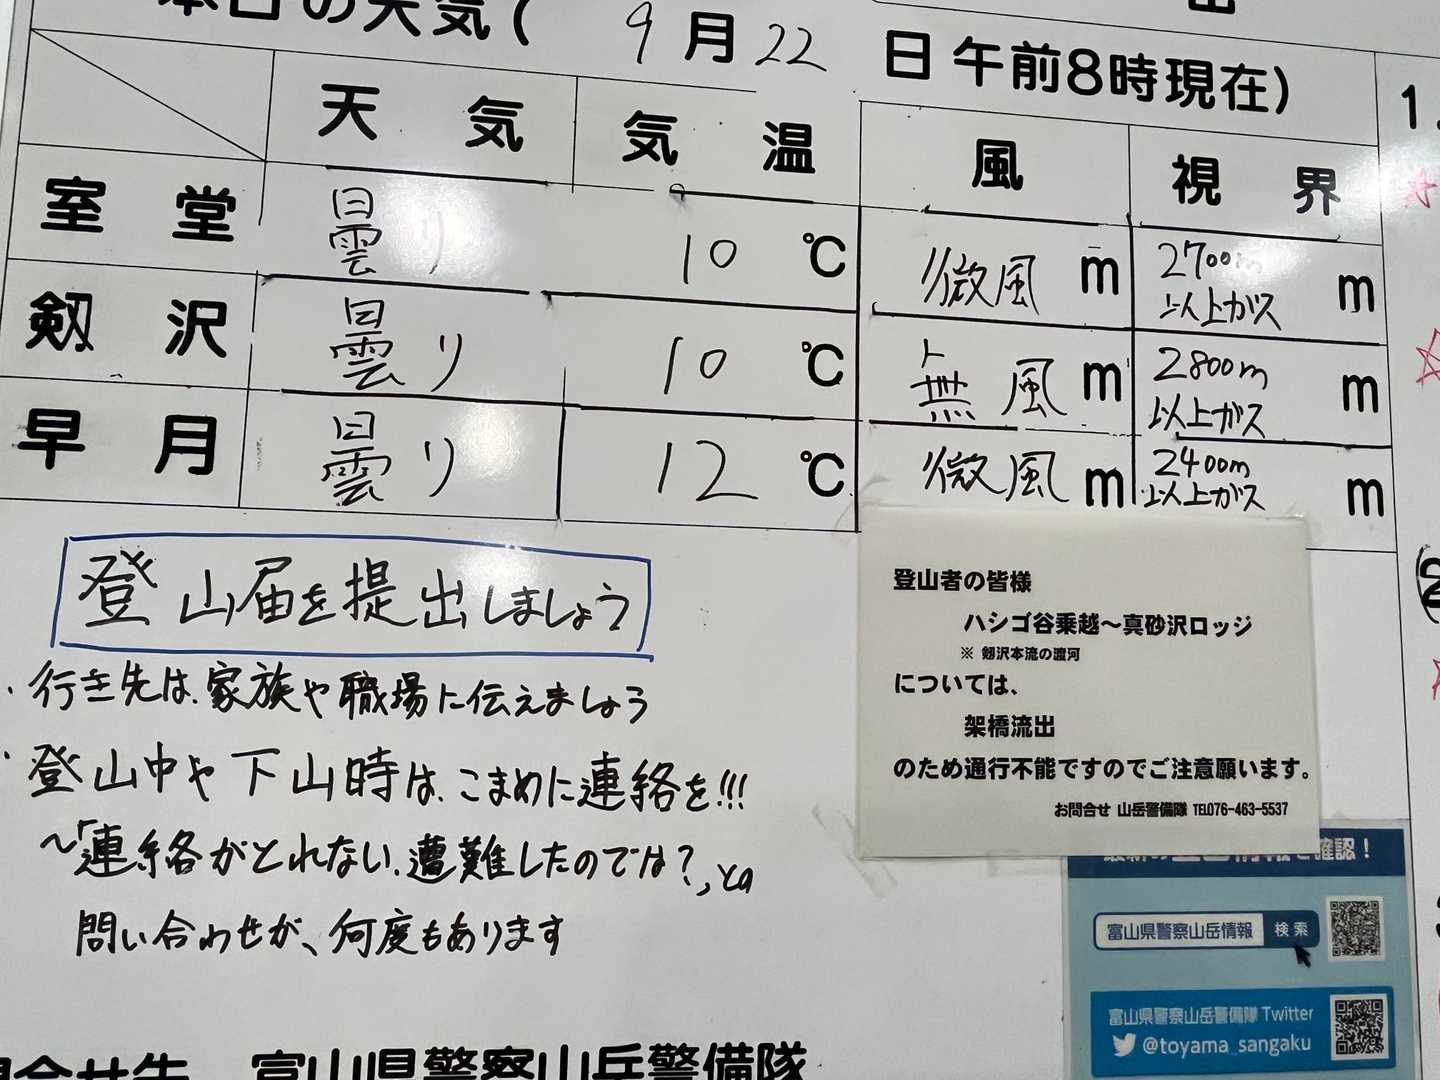 本日の天気( 9月22日 午前8時現在)
天気 気温 風 視界
室堂 曇り 10℃ 微風 m 2700m以上ガス m
剱沢 曇り 10℃ 無風 m 2800m以上ガス m
早月 曇り 12℃ 微風 m 2400m以上ガス m
登山届を提出しましょう
・行き先は、家族や職場に伝えましょう
・登山中や下山時は、こまめに連絡を!!!
〜「連絡がとれない、遭難したのでは?」との
問い合わせが、何度もあります
登山者の皆様
ハシゴ谷乗越〜真砂沢ロッジ
※ 剱沢本流の渡河
については、
架橋流出
のため通行不能ですのでご注意願います。
お問合せ 山岳警備隊 TEL076-463-5537
確認!
富山県警察山岳情報 検索
富山県警察山岳警備隊 Twitter
@toyama_sangaku
富山県警察山岳警備隊
1.